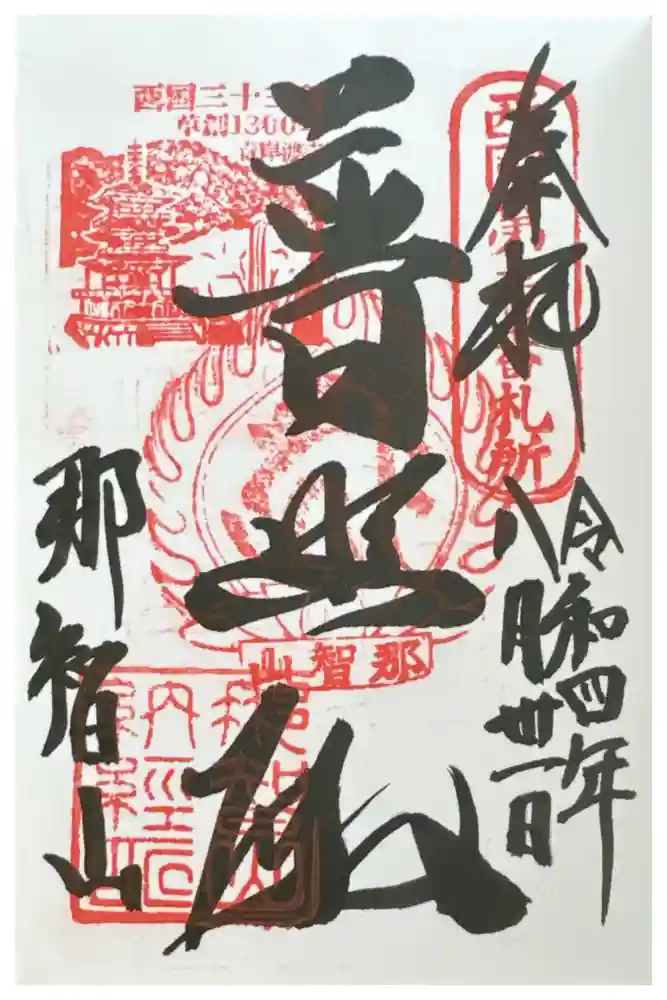 奉拝
西国 番札所
令和四年
八月卅一日
西国三十三
草創1300
青岸渡
普照殿
那智山
那智山